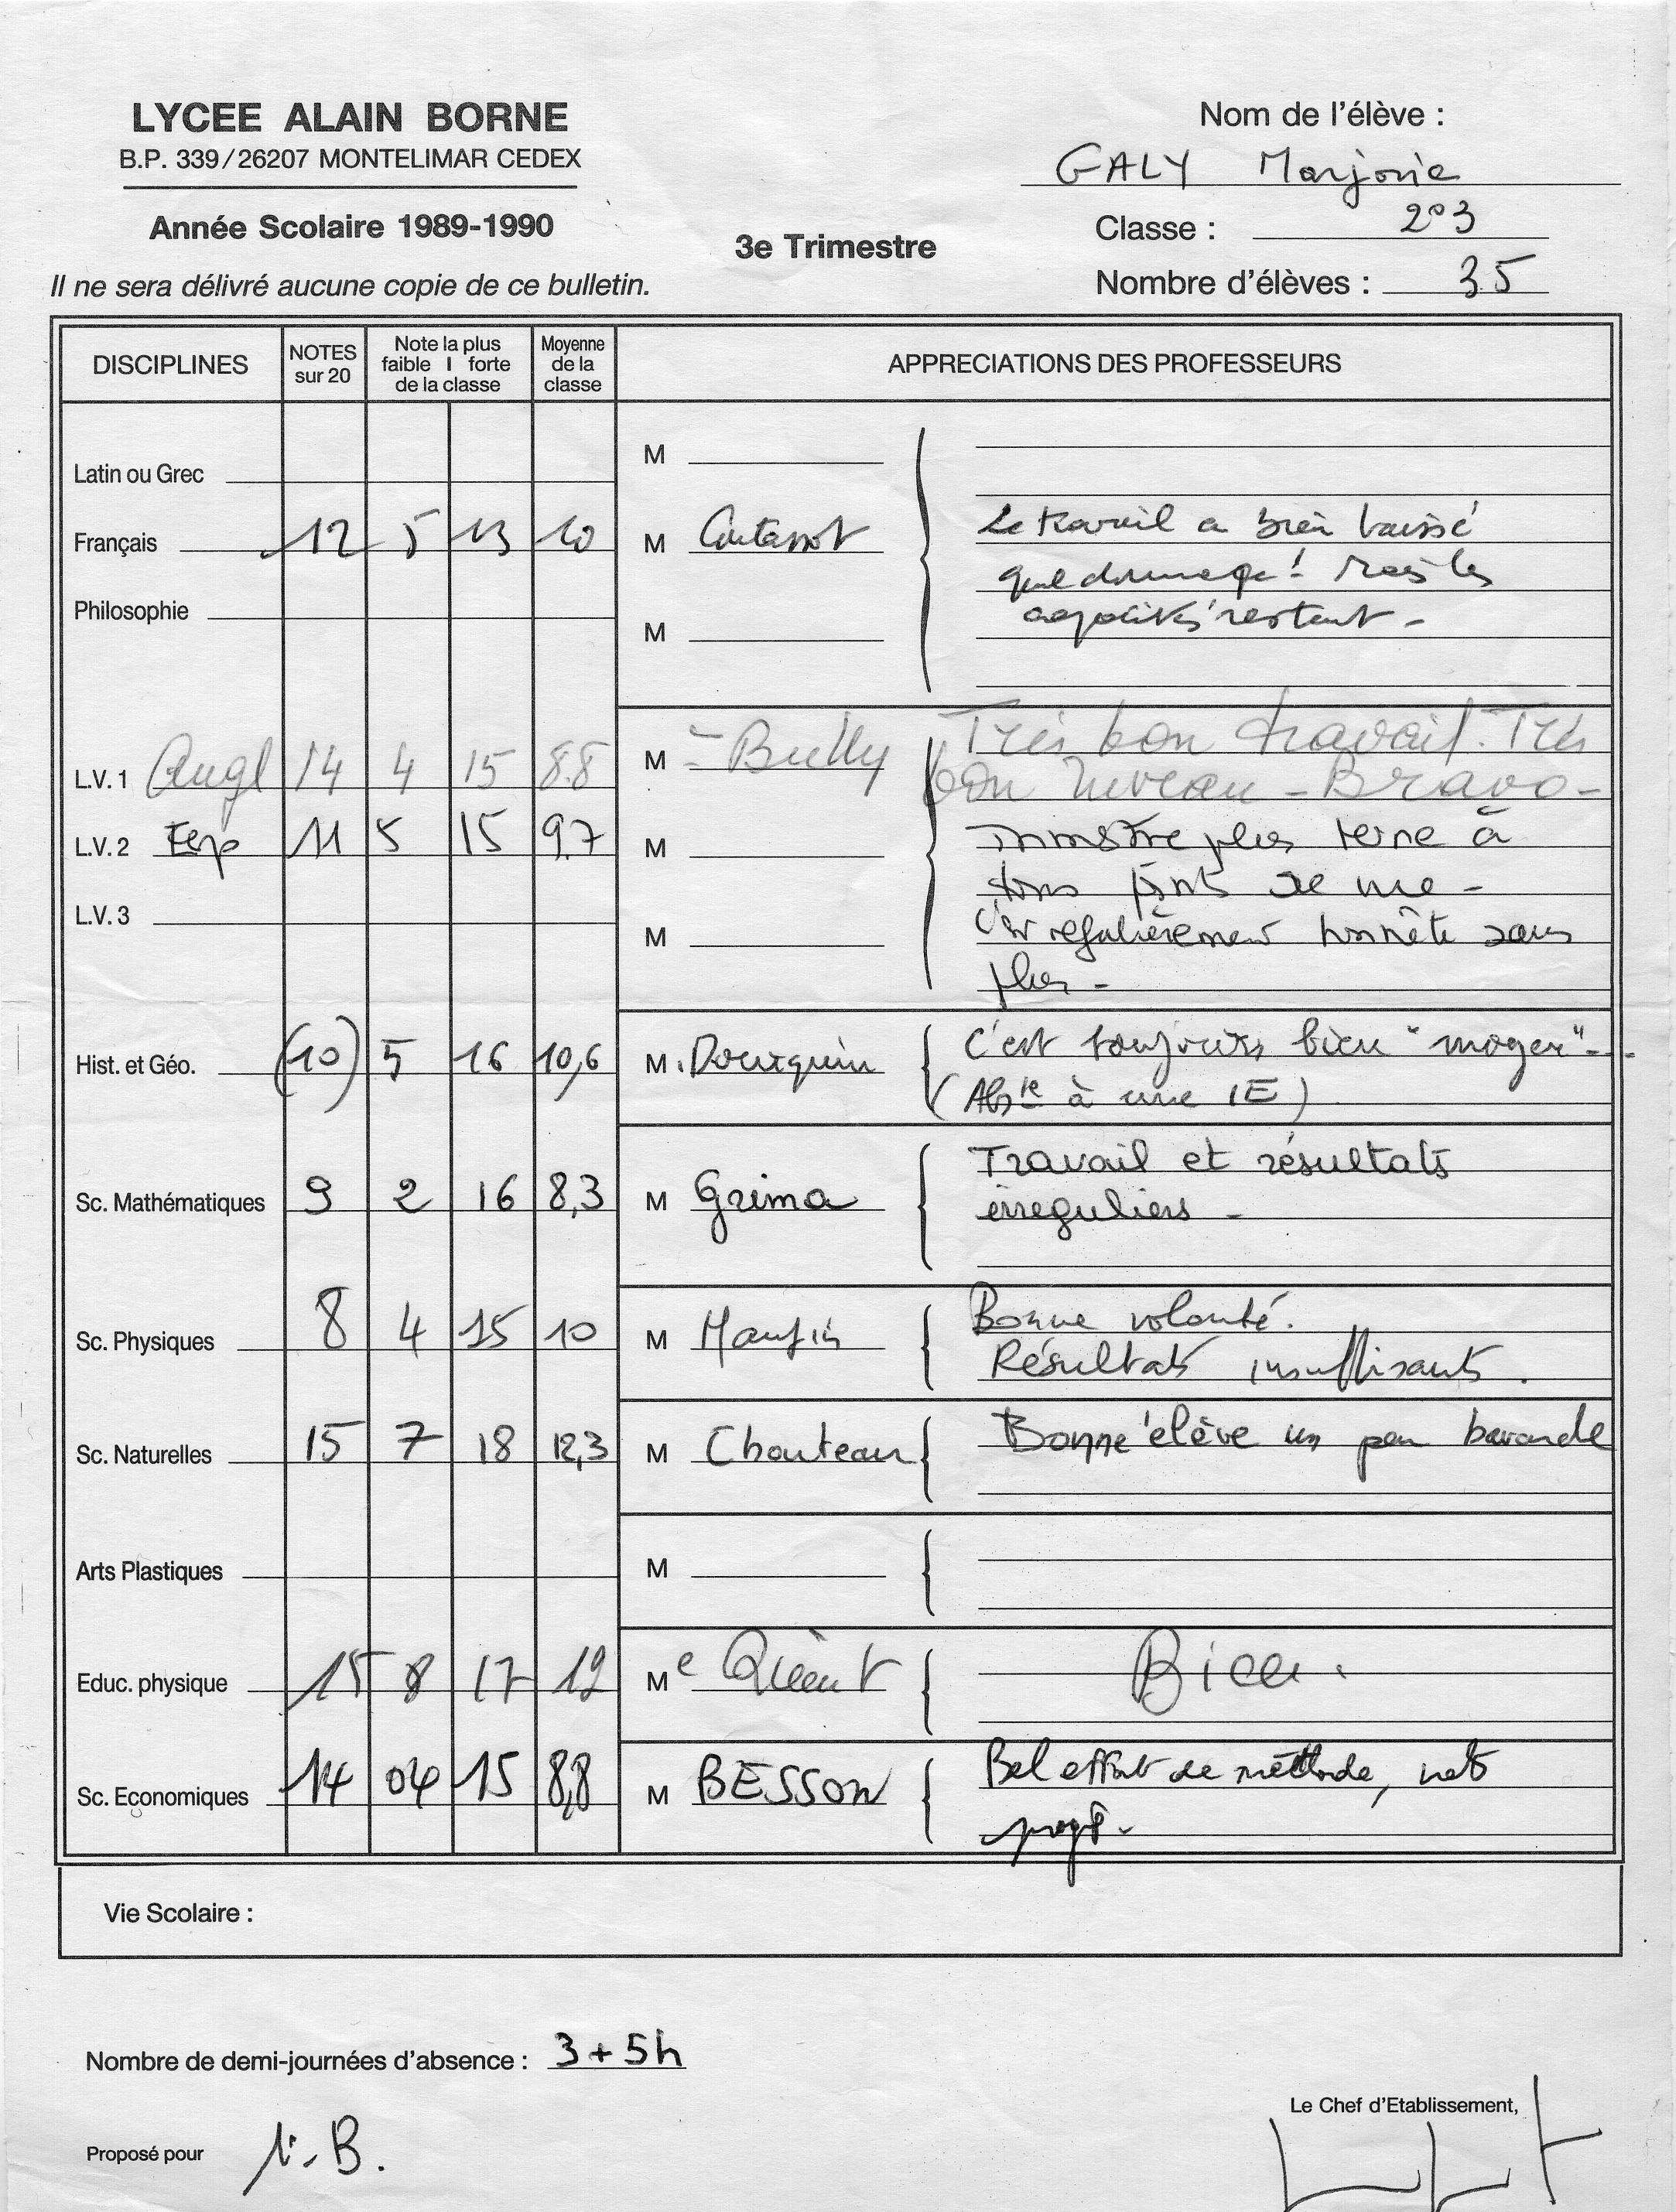 LYCEE ALAIN BORNE
B.P. 339/26207 MONTELIMAR CEDEX
Année Scolaire 1989-1990
Il ne sera délivré aucune copie de ce bulletin.
3e Trimestre
Nom de l'élève :
GALY Marjorie
Classe : 2°3
Nombre d'élèves : 35
DISCIPLINES NOTES sur 20 Note la plus faible | forte de la classe Moyenne de la classe APPRECIATIONS DES PROFESSEURS
Latin ou Grec M
Français 12 5 13 10 M
Le travail a bien baissé
quel dommage ! Mais les
capacités restent -
Philosophie M
L.V. 1 Angl 14 4 15 8.8 M Bully
Très bon travail. Très
bon niveau - Bravo -
L.V. 2 Esp 11 5 15 9.7 M
Trimestre plus terne à
tous points de vue -
C'est régulièrement honnête sans
plus -
L.V. 3 M
Hist. et Géo. (10) 5 16 10,6 M. Dourquin
C'est toujours bien "moyen"...
(Abs à une IE)
Sc. Mathématiques 9 2 16 8,3 M Grima
Travail et résultats
irreguliers -
Sc. Physiques 8 4 15 10 M
Bonne volonté.
Résultats insuffisants.
Sc. Naturelles 15 7 18 12,3 M Chouteau
Bonne élève un peu bavarde
Arts Plastiques M
Educ. physique 15 8 17 12 Me
Bien.
Sc. Economiques 14 04 15 8,8 M BESSON
Bel effort de méthode, nets
progrès.
Vie Scolaire :
Nombre de demi-journées d'absence : 3 + 5h
Le Chef d'Etablissement,
Proposé pour 1-B.